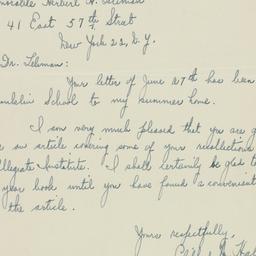 41 East 57th Street
New York 22, N.Y.
Dr. Lehman:
Your letter of June 27th has been
School to my summer home.
I am very much pleased that you are g
an article covering some of your recollections
Collegiate Institute. I shall certainly be glad to
year book until you have found a convenient
the article.
Yours respectfully,